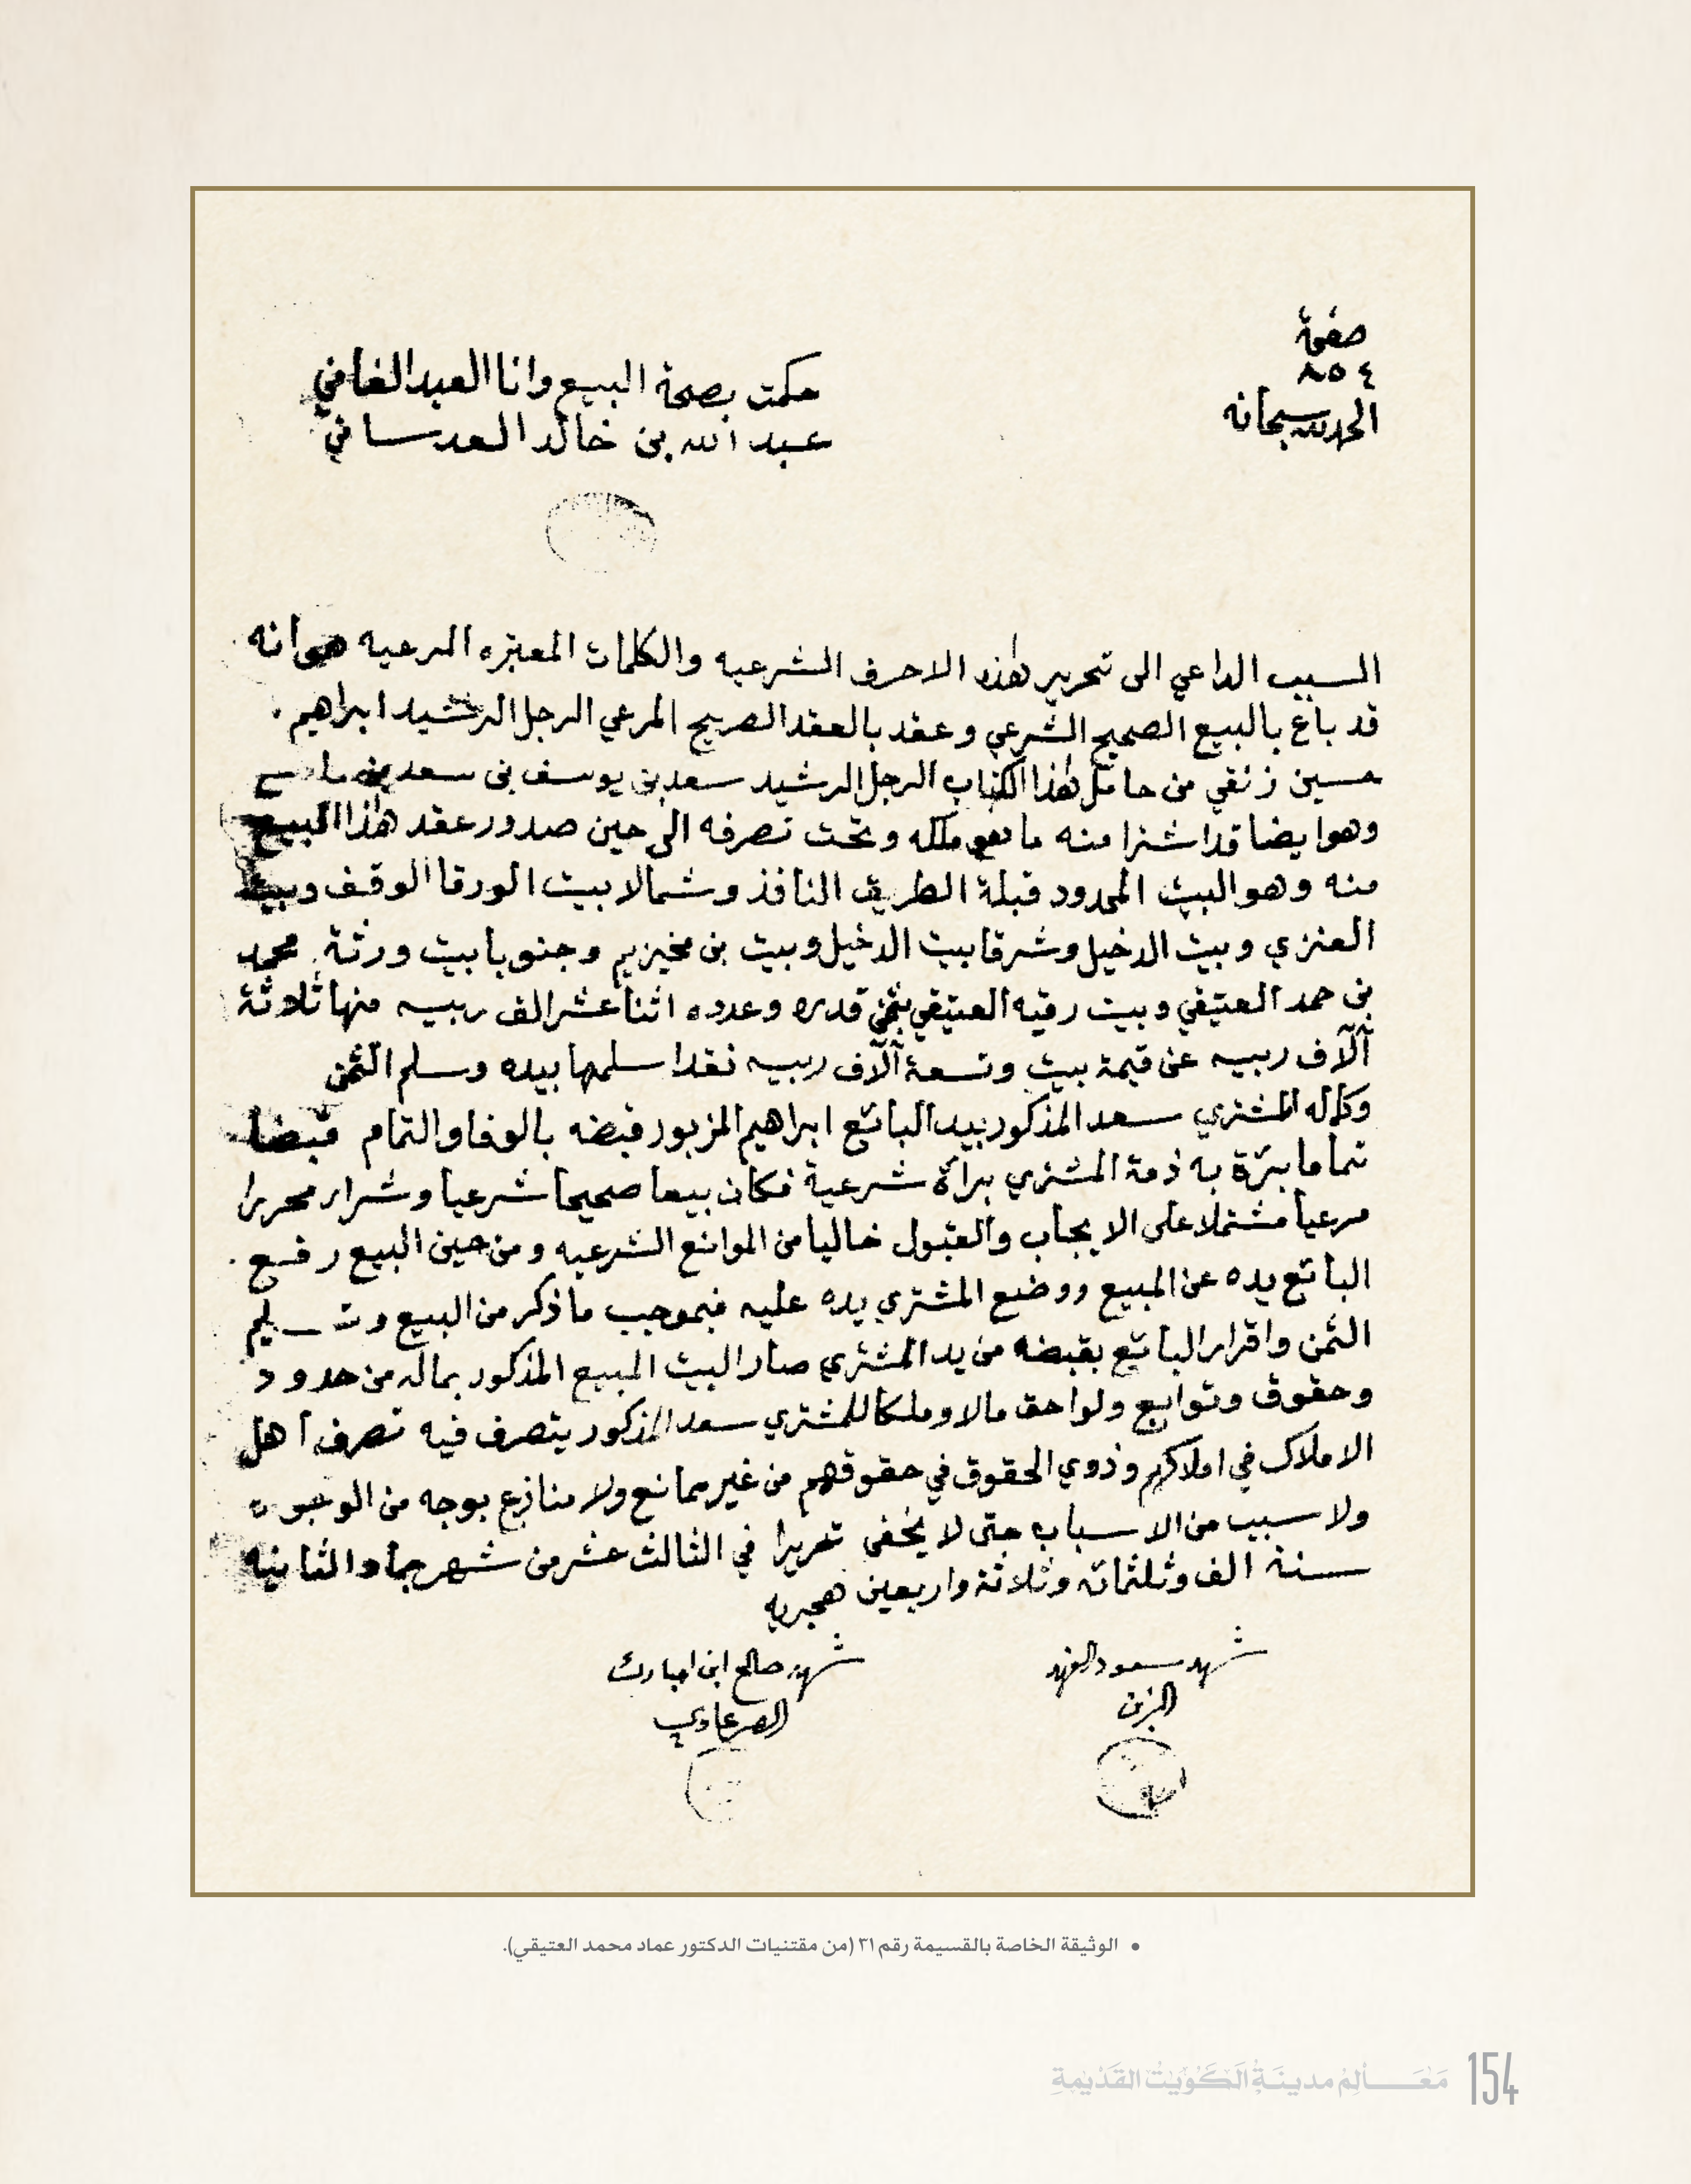 صفحة
٨٥٤
الحمد لله سبحانه
حكمت بصحة البيع وانا العبد الفاني
عبد الله بن خالد العدساني
السبب الداعي الى تحرير هذه الاحرف الشرعيه والكلمات المعتبره المرعيه هوانه
قد باع بالبيع الصحيح الشرعي وعقد بالعقد الصريح المرعي الرجل الرشيد ابراهيم
حسين زنقي من حامل هذا الكتاب الرجل الرشيد سعد بن يوسف بن سعد بن
وهو ايضا قد اشترا منه ما هو ملكه وتحت تصرفه الى حين صدور عقد هذا البيع
منه وهو البيت المحدود قبلة الطريق النافذ وشمالا بيت الورقا الوقف وبيت
العنزي وبيت الدخيل وشرقا بيت الدخيل وبيت بن مخيزيم وجنوبا بيت ورثة محمد
بن حمد العتيقي وبيت رقيه العتيقي بثمن قدره وعدده اثنا عشر الف ربيه منها ثلاثة
آلآف ربيه عن قيمة بيت وتسعة آلآف ربيه نقدا سلمها بيده وسلم الثمن
وكاله المشتري سعد المذكور بيد البائع ابراهيم المزبور فبضه بالوفا والتمام قبضا
تماما برئة به ذمة المشتري برآة شرعية فكان بيعا صحيحا شرعيا وشراء محررا
مرعيا مشتملا على الايجاب والقبول خاليا من الموانع الشرعيه ومن حين البيع رفع
البائع يده عن المبيع ووضع المشتري يده عليه فبموجب ما ذكر من البيع وتسليم
الثمن واقرار البائع بقبضه من يد المشتري صار البيت المبيع المذكور بماله من حدود
وحقوق وتوابع ولواحق مالا وملكا للمشتري سعد المذكور يتصرف فيه تصرف اهل
الاملاك في املاكهم وذوي الحقوق في حقوقهم من غير ممانع ولا منازع بوجه من الوجوه
ولا سبب من الاسباب حتى لا يخفى تحريرا في الثالث عشر من شهر جماد الثانيه
سنة الف وثلثمائه وثلاثة واربعين هجريه
شهد سعود الفهد
الزبن
شهد صالح ابن امبارك
الصرعاوي
• الوثيقة الخاصة بالقسيمة رقم ٣١ (من مقتنيات الدكتور عماد محمد العتيقي).
مَعَالِمُ مدينَةِ الكُوَيْتْ القَدْيمَةِ 154